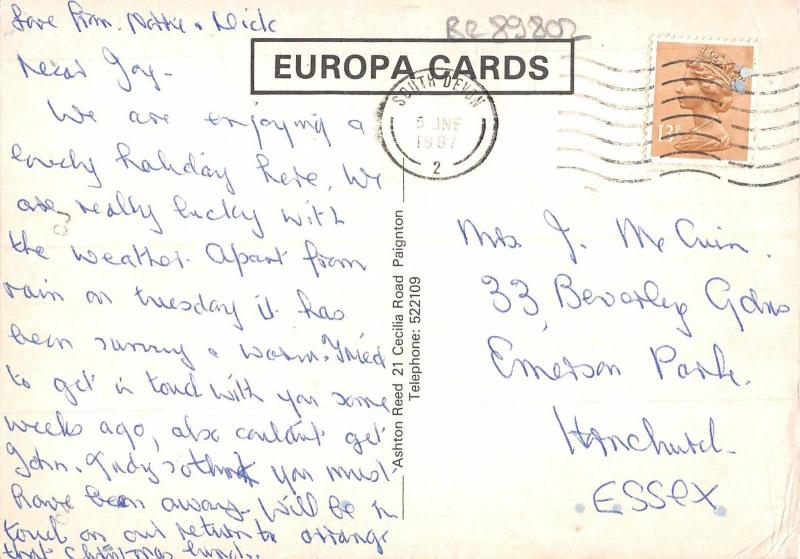 Love from. Mattie & Nick
Dear Joy-
We are enjoying a
lovely holiday here. We
are really lucky with
the weather. Apart from
rain on tuesday it has
been sunny & warm. Tried
to get in touch with you some
weeks ago, also couldn't get
John. & Judy so think you must
have been away. Will be in
touch on our return to arrange
that Christmas lunch.
BR 89802
EUROPA CARDS
SOUTH DEVON
5 JNE
1987
2
13P
Ashton Reed 21 Cecilia Road Paignton
Telephone: 522109
Mrs J. Mc
33, Beverley Gdns
Emerson Park.
Hornchurch.
ESSEX